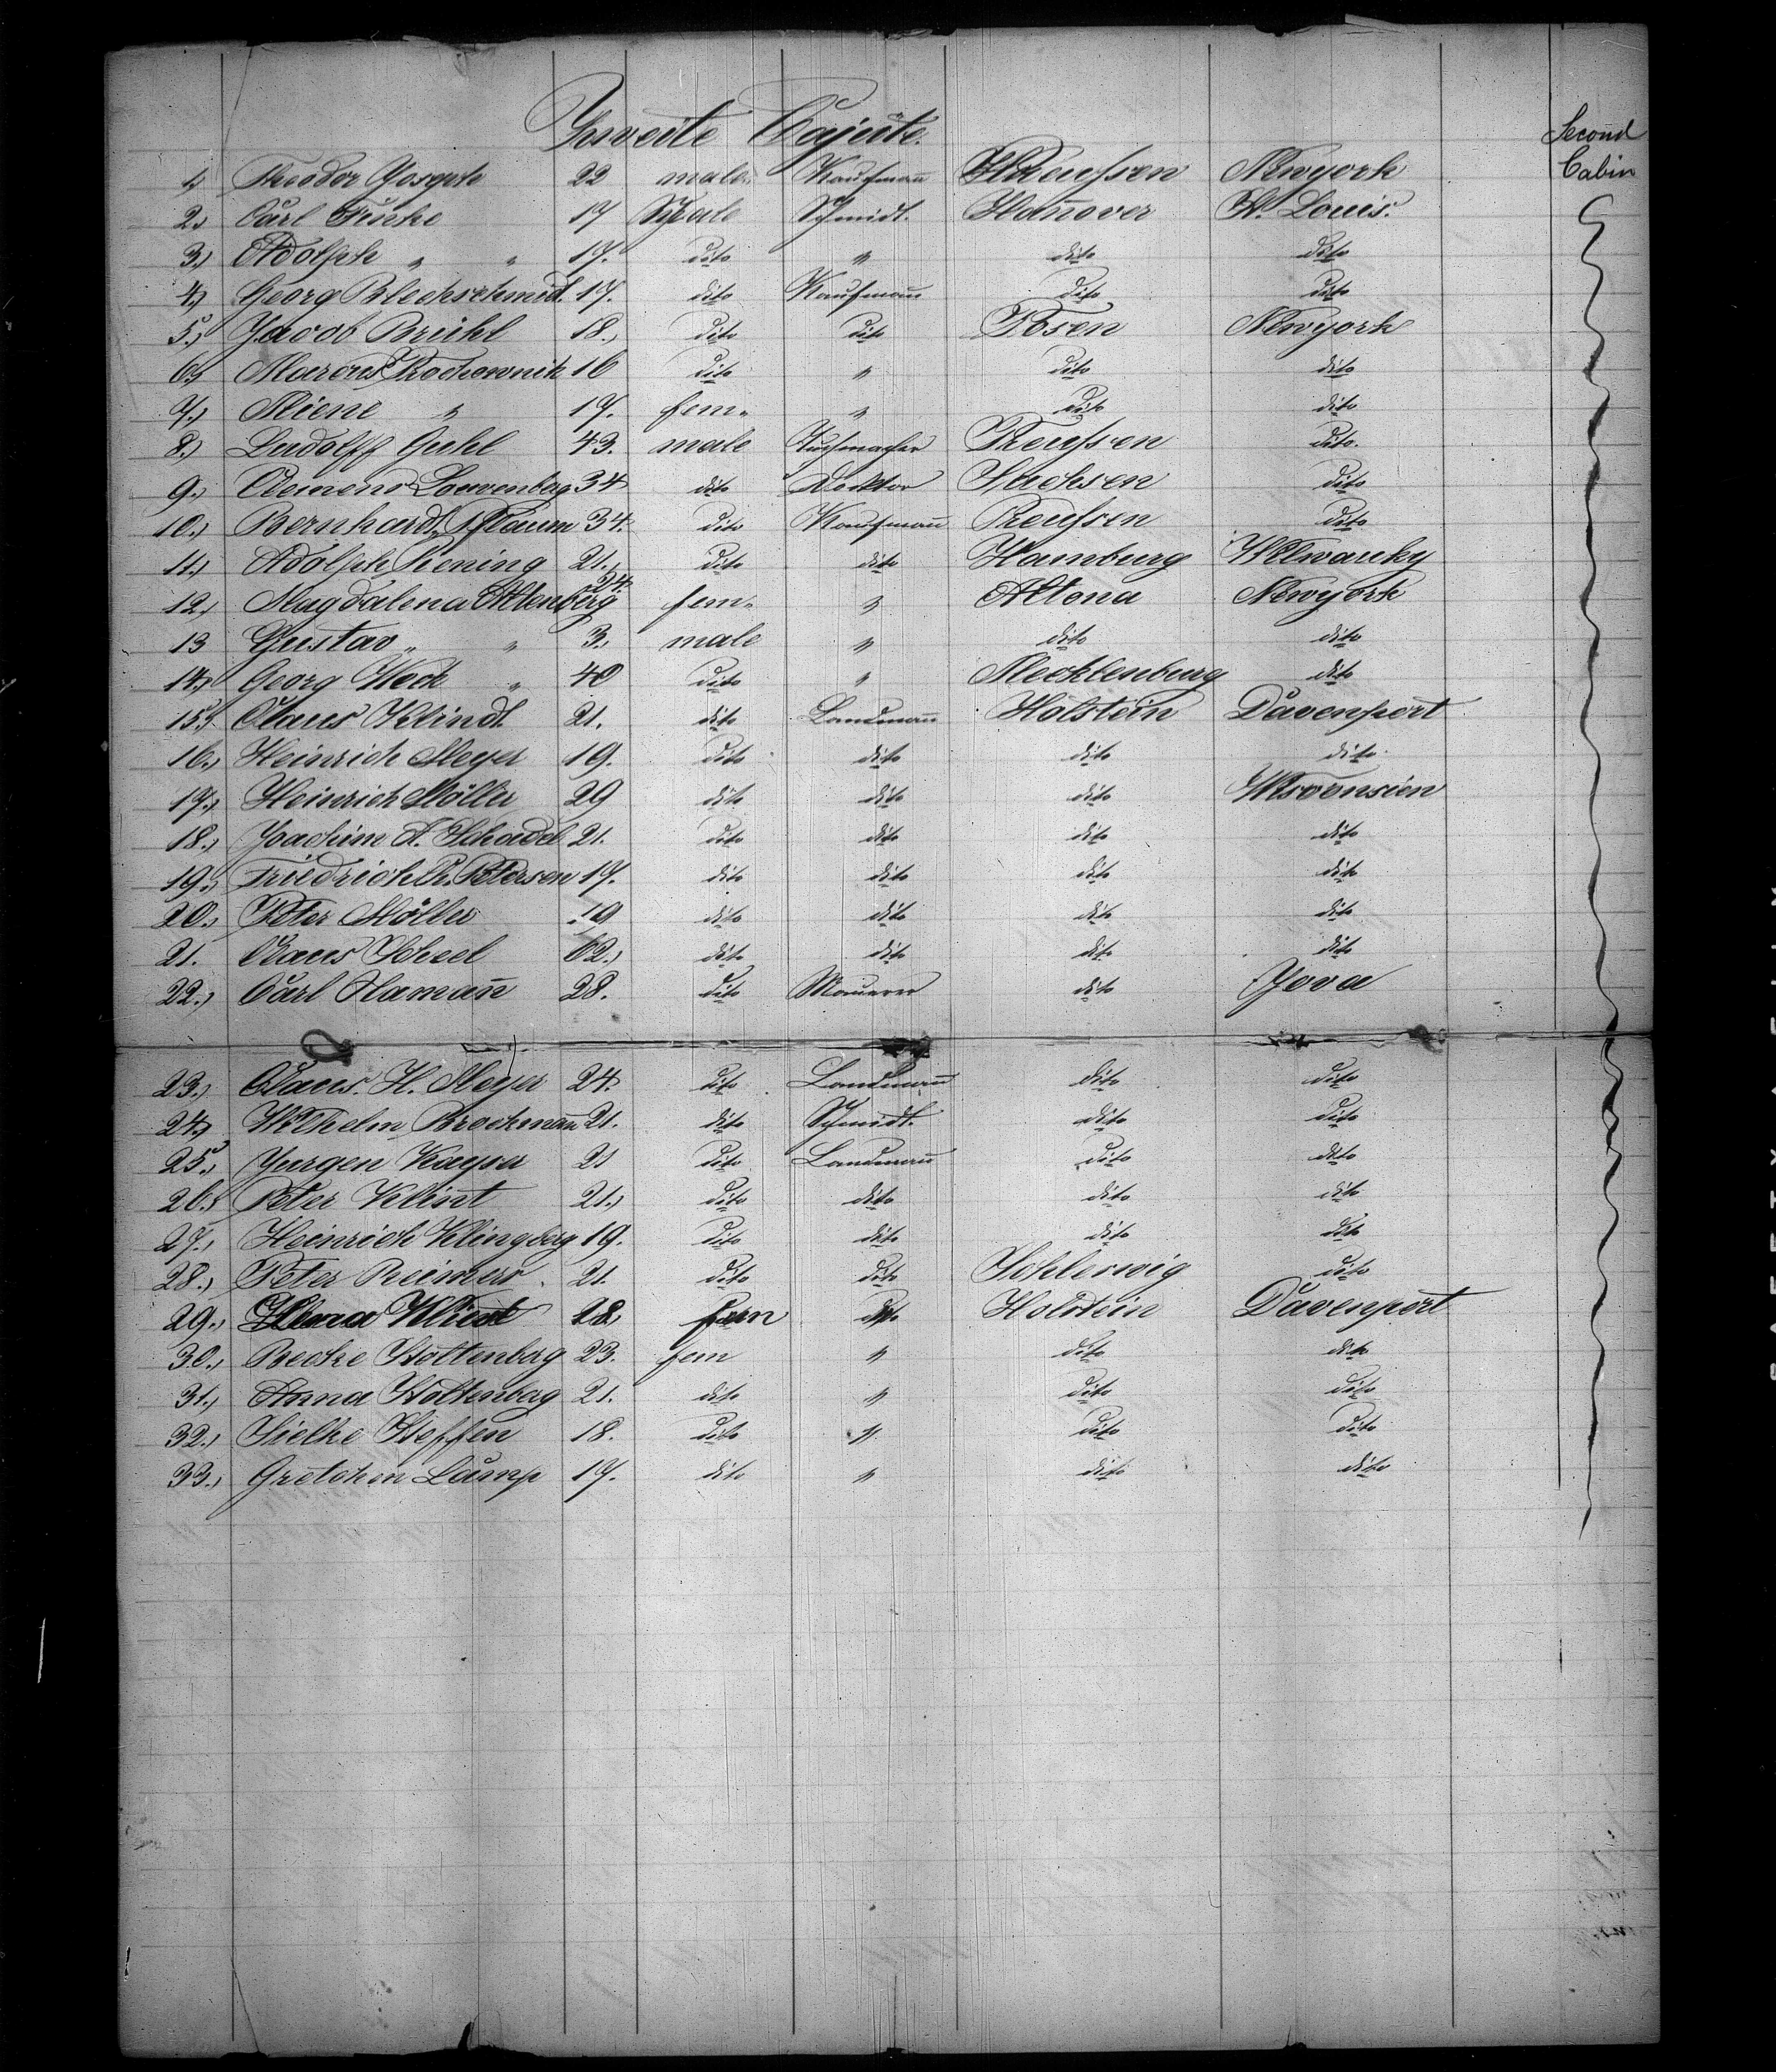 Zweite Cajüte.
Second
Cabin
1.) Theodor Joseph 22 male Kaufmann Preussen Newyork
2.) Carl Fincke 17 male Schmidt Hanover St. Louis.
3.) Adolph " " 17. dito " dito dito
4.) Georg Blechschmid. 17. dito Kaufmann dito dito
5.) Jacob Brühl 18. dito dito Posen Newyork
6.) Marcus Kochownik 16 dito " dito dito
7.) Miene " 17. fem. " dito dito
8.) Ludolff Guhl 43. male Preussen dito.
9.) Clemens Loewenberg 34 dito Docktor Sachsen dito
10.) Bernhardt Pflaum 34. dito Kaufmann Preussen dito
11.) Adolph Kening 21. dito dito Hamburg Milwauky
12.) Magdalena Altenberg 24. fem. " Altona Newyork
13 Gustav " " 3. male " dito dito
14.) Georg Weck " 40 dito " Mecklenburg dito
15.) Claus Klindt 21. dito Landmann Holstein Davenport
16.) Heinrich Meyer 19. dito dito dito dito
17.) Heinrich Möller 29 dito dito dito Wisconsien
18.) Joachim A. Schadel 21. dito dito dito dito
19.) Friedrich Ch. Petersen 17. dito dito dito dito
20.) Peter Möller 19 dito dito dito dito
21. Claus Scheel 62. dito dito dito dito
22.) Carl Hamañ 28. dito Maurer dito Jova
23.) Claus. H. Meyer 24. dito Landmann dito dito
24.) Wilhelm Brockmañ 21. dito Schmidt. dito dito
25.) Jurgen Kayser 21 dito Landmann dito dito
26.) Peter Klint 21. dito dito dito dito
27.) Heinrich Klingberg 19. dito dito dito dito
28.) Peter Reimers. 21. dito dito Schleswig dito
29.) Klint 28. fem dito Holstein Davenport
30.) Becke Stoltenberg 23. fem " dito dito
31.) Anna Stoltenberg 21. dito " dito dito
32.) Sielke Steffen 18. dito " dito dito
33.) Gretchen Lamp 17. dito " dito dito